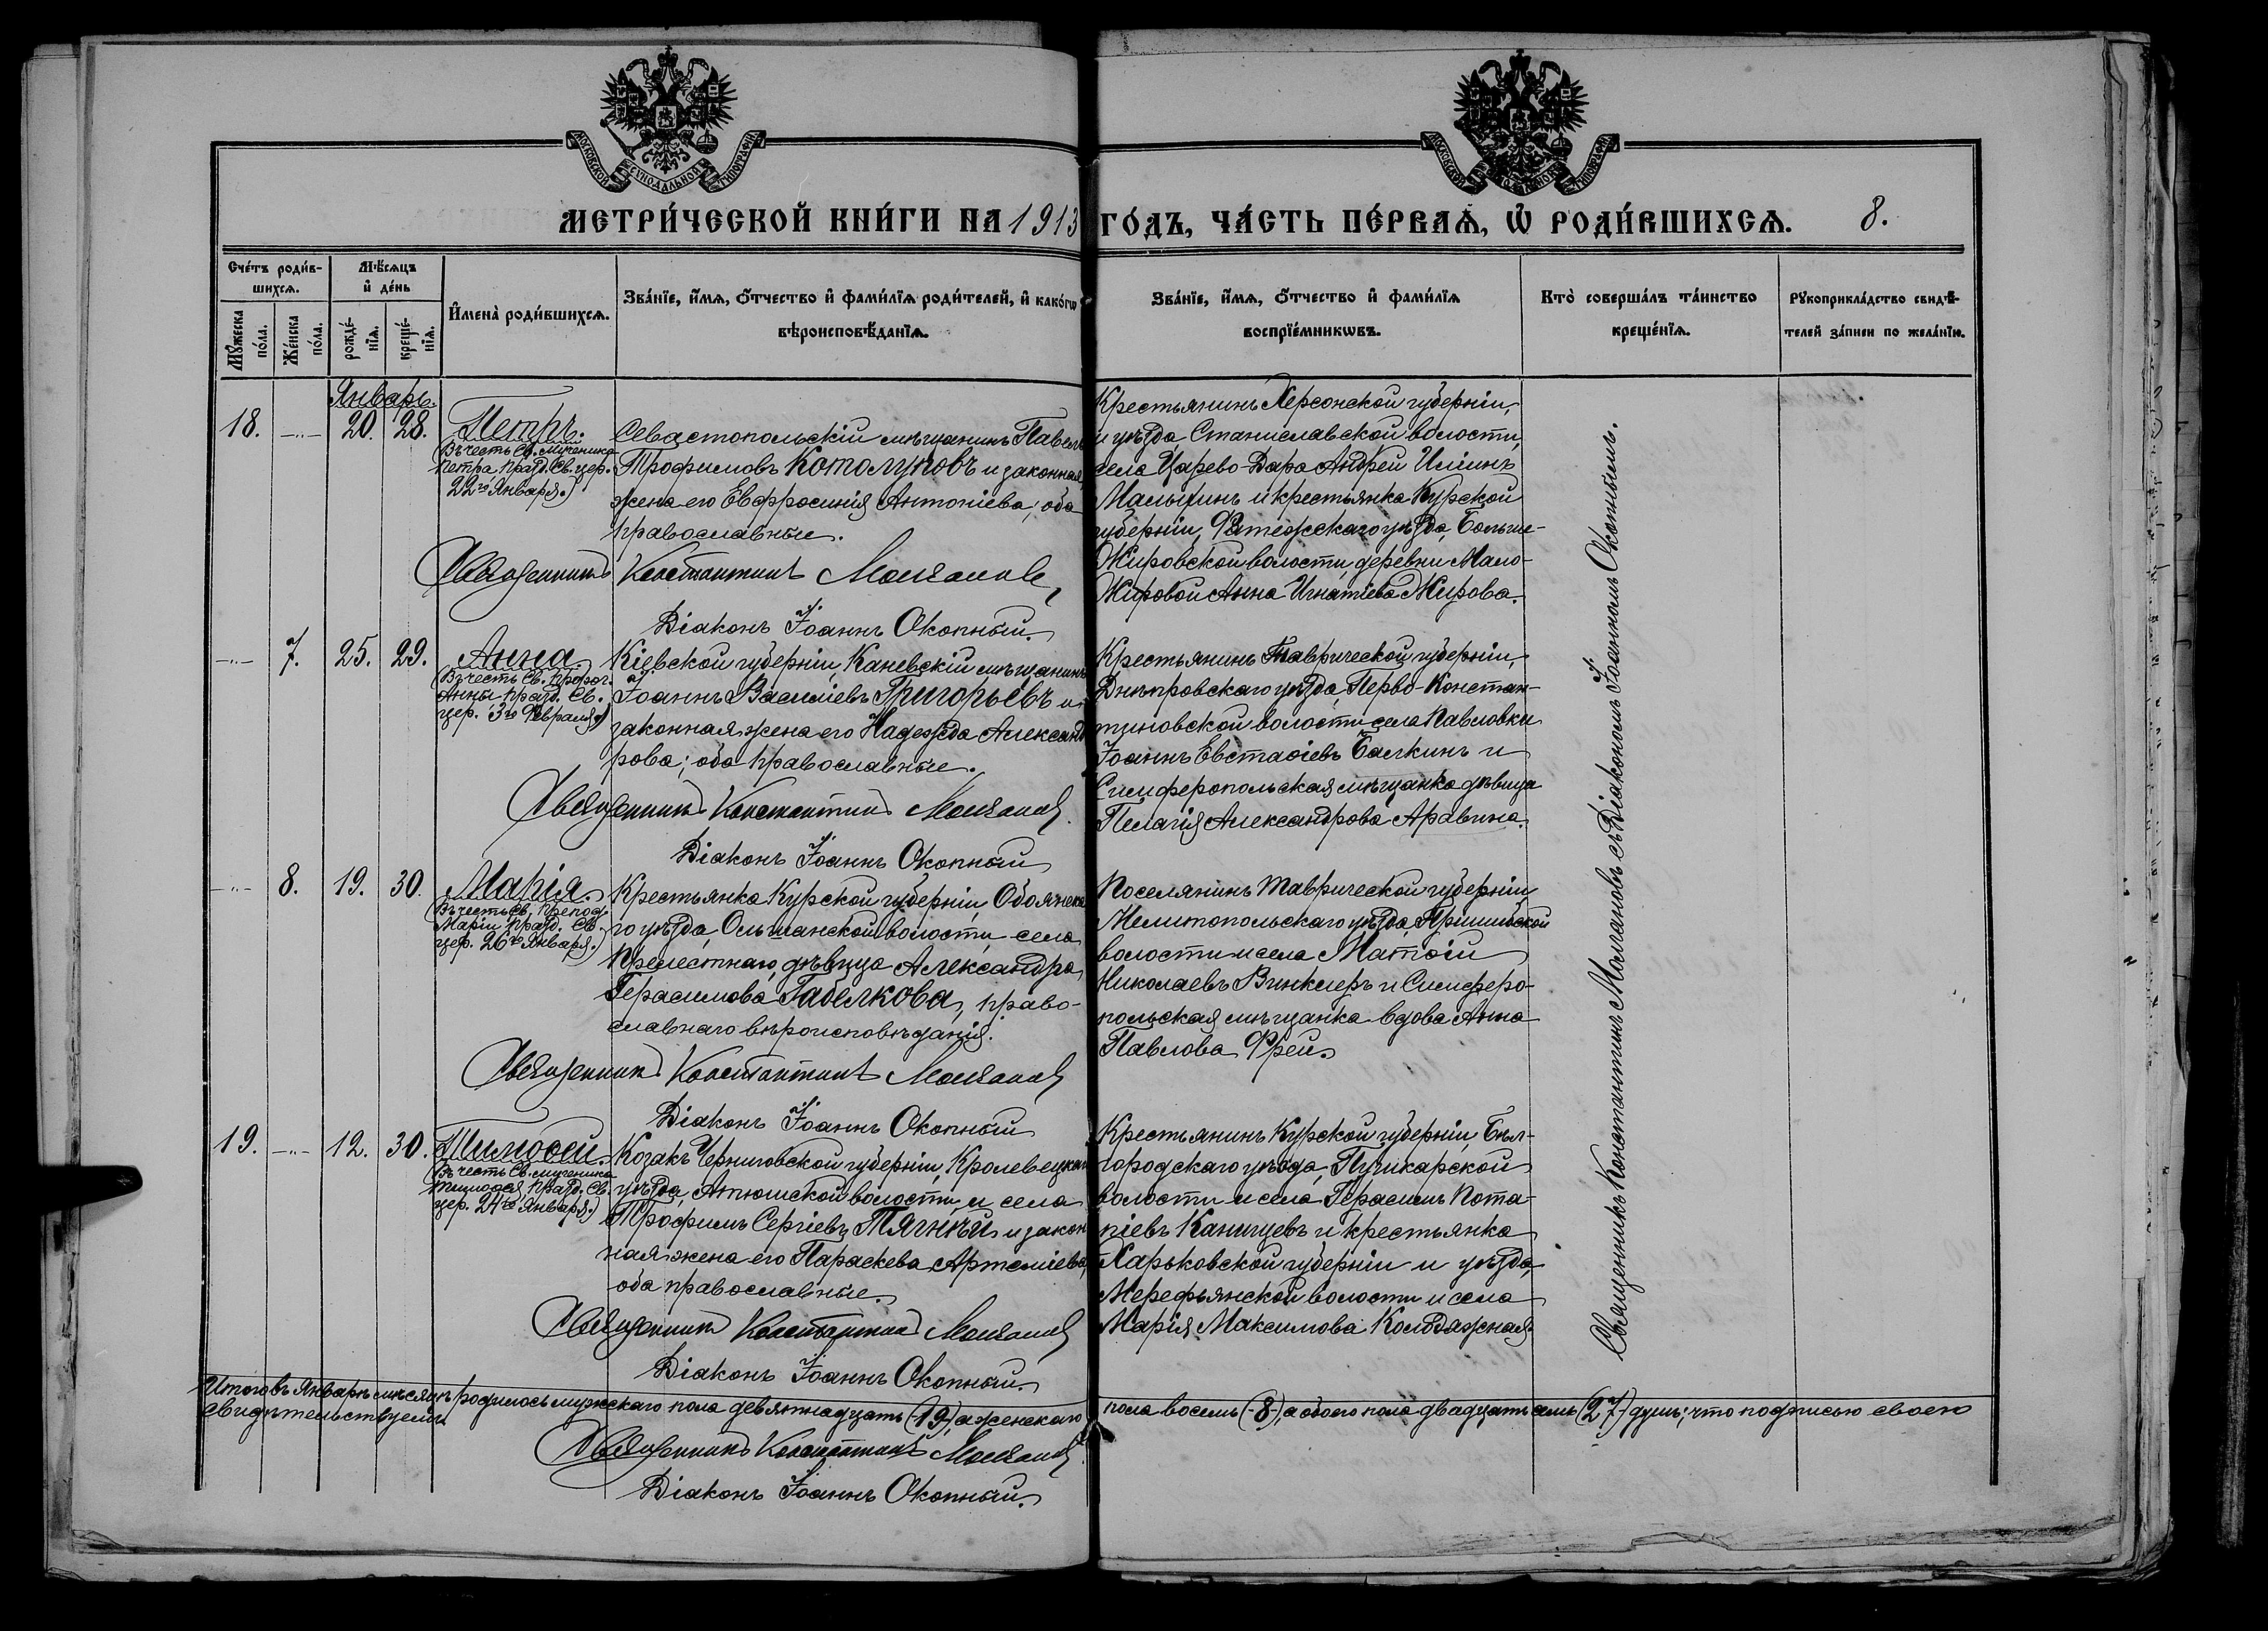 МОСКОВСКОЙ СѴНОДАЛЬНОЙ ТИПОГРАФІИ
МОСКОВСКОЙ ТИПОГРАФІИ
МЕТРИ́ЧЕСКОЙ КНИ́ГИ НА 1913 ГО́ДЪ, ЧА́СТЬ ПЕ́РВАѦ, Ѡ҆ РОДИ́ВШИХСѦ. 8.
Сче́тъ роди́вшихсѧ.
Мꙋ́жеска по́ла.
Же́нска по́ла.
Мѣ́сѧцъ и҆ де́нь
рожде́нїѧ.
креще́нїѧ.
И҆мена̀ роди́вшихсѧ.
Зва́нїе, и҆́мѧ, ѻ҆́тчество и҆ фами́лїѧ роди́телей, и҆ како́гѡ
вѣроисповѣ́данїѧ.
Зва́нїе, и҆́мѧ, ѻ҆́тчество и҆ фами́лїѧ
воспрїе́мникѡвъ.
Кто̀ соверша́лъ та́инство
креще́нїѧ.
Рꙋкоприкла́дство свидѣ́-
телей за́писи по жела́нїю.
Январь.
18. -"- 20. 28.
Петръ.
(Въ честь Св. мученика
Петра, празд. Св. цер.
22го Января.)
Севастопольскій мѣщанинъ Павелъ
Трофимовъ Котолуповъ и законная
жена его Евфросинія Антоніева; оба
православные.
Священникъ Константинъ Молчановъ
Діаконъ Іоаннъ Окопный.
Крестьянинъ Херсонской губерніи,
и уѣзда, Станиславской волости,
села Царево-Дара Андрей Иліинъ
Малыринъ и крестьянка Курской
губерніи, Фатежскаго уѣзда, Больше-
Жировской волости, деревни Мало-
Жировой Анна Игнатіева Жирова.
-"- 7. 25. 29.
Анна.
(Въ честь Св. прорoч.
Анны, празд. Св.
цер. 3го Февраля)
Кіевской губерніи, Каневскій мѣщанинъ
Іоаннъ Василіевъ Григорьевъ и
законная жена его Надежда Александ
рова; оба православные.
Священникъ Константинъ Молчановъ.
Діаконъ Іоаннъ Окопный
Крестьянинъ Таврической губерніи,
Днѣпровскаго уѣзда, Перво-Констан-
тиновской волости, села Павловки
Іоаннъ Евстаѳіевъ Балкинъ и
Симферопольская мѣщанка дѣвица
Пелагія Александрова Аравина.
-"- 8. 19. 30.
Марія.
(Въ честь Св. препод.
Маріи, празд. Св.
цер. 26го Января.)
Крестьянка Курской губерніи, Обоянска
го уѣзда, Ольшанской волости, села
Прелестнаго, дѣвица Александра
Герасимова Габелкова, право-
славнаго вѣроисповѣданія.
Священникъ Константинъ Молчановъ
Діаконъ Іоаннъ Окопный
Поселянинъ Таврической губерніи,
Мелитопольскаго уѣзда, Пришибской
волости и села Матѳій
Николаевъ Винклеръ и Симферо-
польская мѣщанка вдова Анна
Павлова Фрей.
19. -"- 12. 30.
Тимоѳей.
(Въ честь Св. мученика
Тимоѳея, празд. Св.
цер. 24го Января.)
Козакъ Черниговской губерніи, Кролевецкаго
уѣзда, Атюшской волости и села
Трофимъ Сергіевъ Тягній и закон
ная жена его Параскева Артеміева,
оба православные.
Священникъ Константинъ Молчановъ
Діаконъ Іоаннъ Окопный.
Крестьянинъ Курской губерніи, Бѣл-
городскаго уѣзда, Пушкарской
волости и села Герасимъ Пота-
піевъ Канищевъ и крестьянка
Харьковской губерніи и уѣзда,
Мерефьянской волости и села
Марія Максимова Колодяжная.
Священникъ Константинъ Молчановъ съ Діакономъ Іоанномъ Окопнымъ.
Итого въ Январѣ мѣсяцѣ родилось мужскаго пола девятнадцать (19), а женскаго пола восемь (8), а обоего пола двадцать семь (27) душъ; что подписью своею
свидѣтельствуемъ
Священникъ Константинъ Молчановъ.
Діаконъ Іоаннъ Окопный.